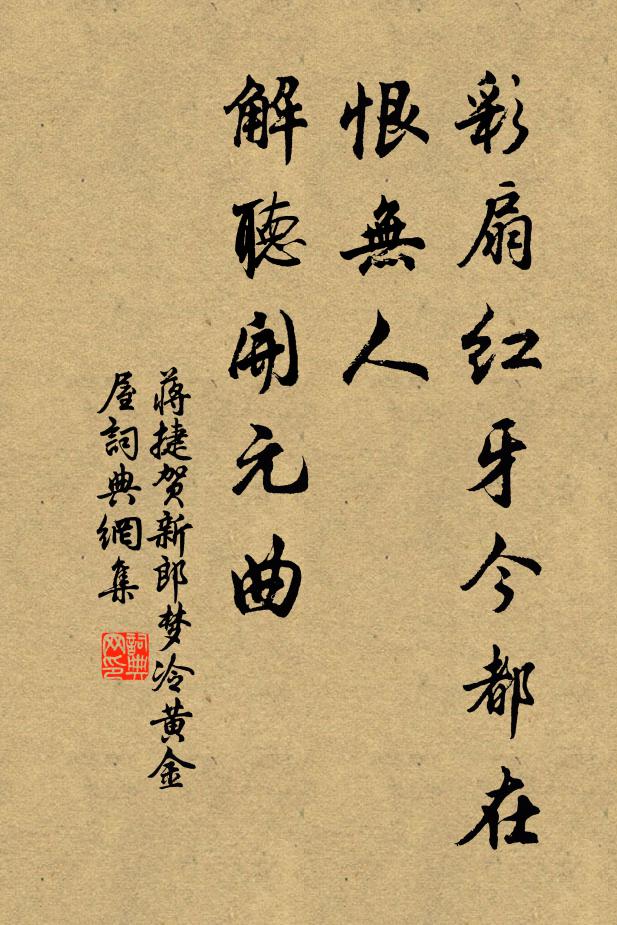 彩扇红牙今都在
恨無人
解聽開元曲
蒋捷贺新郎梦冷黄金
屋詞典網集
詞典网印